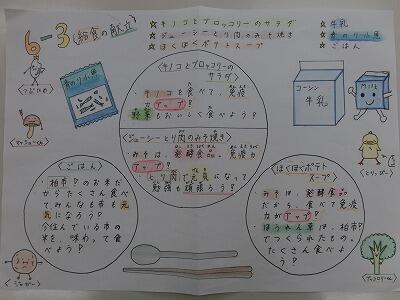 6-3 給食の献立
☆キノコとブロッコリーのサラダ
☆ジューシーとり肉のみそ焼き
☆ほくほくポテトスープ
☆牛乳
☆青のり小魚
☆ごはん
青のり小魚
<キノコとブロッコリーの
サラダ>
・キノコを食べて、免疫
力アップ?
野菜もおいしく食べよう?
<ジューシーとり肉のみそ焼き>
・みそは、発酵食品。免疫力
アップ?
・とり肉で元気になって
勉強も頑張ろう?
コーシン
牛乳
<とりっぴー>
<ごはん>
・柏市?のお米だ
からたくさん食べ
てみんなも市も元
気になろう?
今住んでいる市の
米を、味わって食
べよう?
<ほくほくポテト
スープ>
みそは、発酵食品
だから、食べて免疫
力がアップ?
ほうれん草は、柏市?
でつくられたもの。
たくさん食べよ
う?